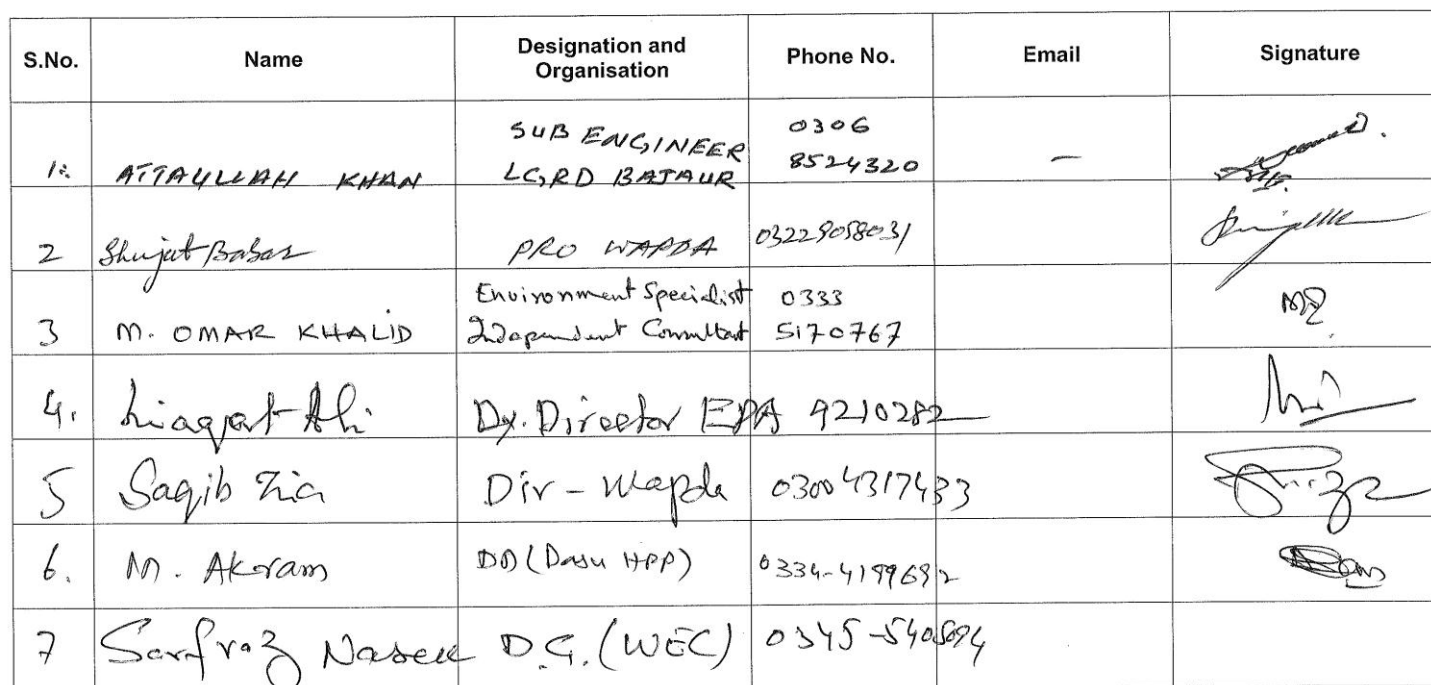 S.No. Name Designation and Organisation Phone No. Email Signature
1. ATTAULLAH KHAN SUB ENGINEER LG,RD BAJAUR 0306 8524320 —
2 Shujat Babar PRO WAPDA 03229058031
3 M. OMAR KHALID Environment Specialist Independent Consultant 0333 5170767
4. Liaqat Ali Dy. Director EPA 9210282
5 Saqib Zia Dir - Wapda 03004317433
6. M. Akram DD (Dasu HPP) 0334-4199692
7 Sarfraz Naseer D.G. (WEC) 0345-5405694